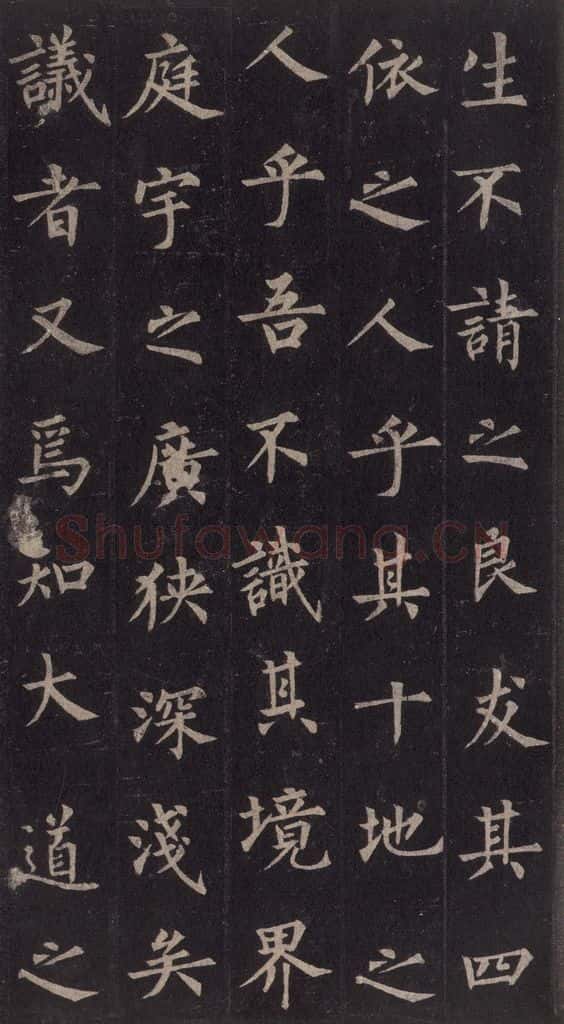 生不請之良友其四
依之人乎其十地之
人乎吾不識其境界
庭宇之廣狹深淺矣
議者又焉知大道之
Shufawang.cn